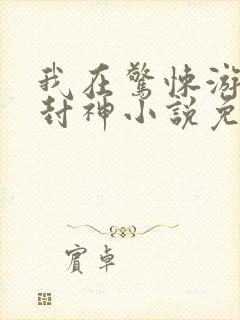 我在驚悚游
封神小說免
賓卓